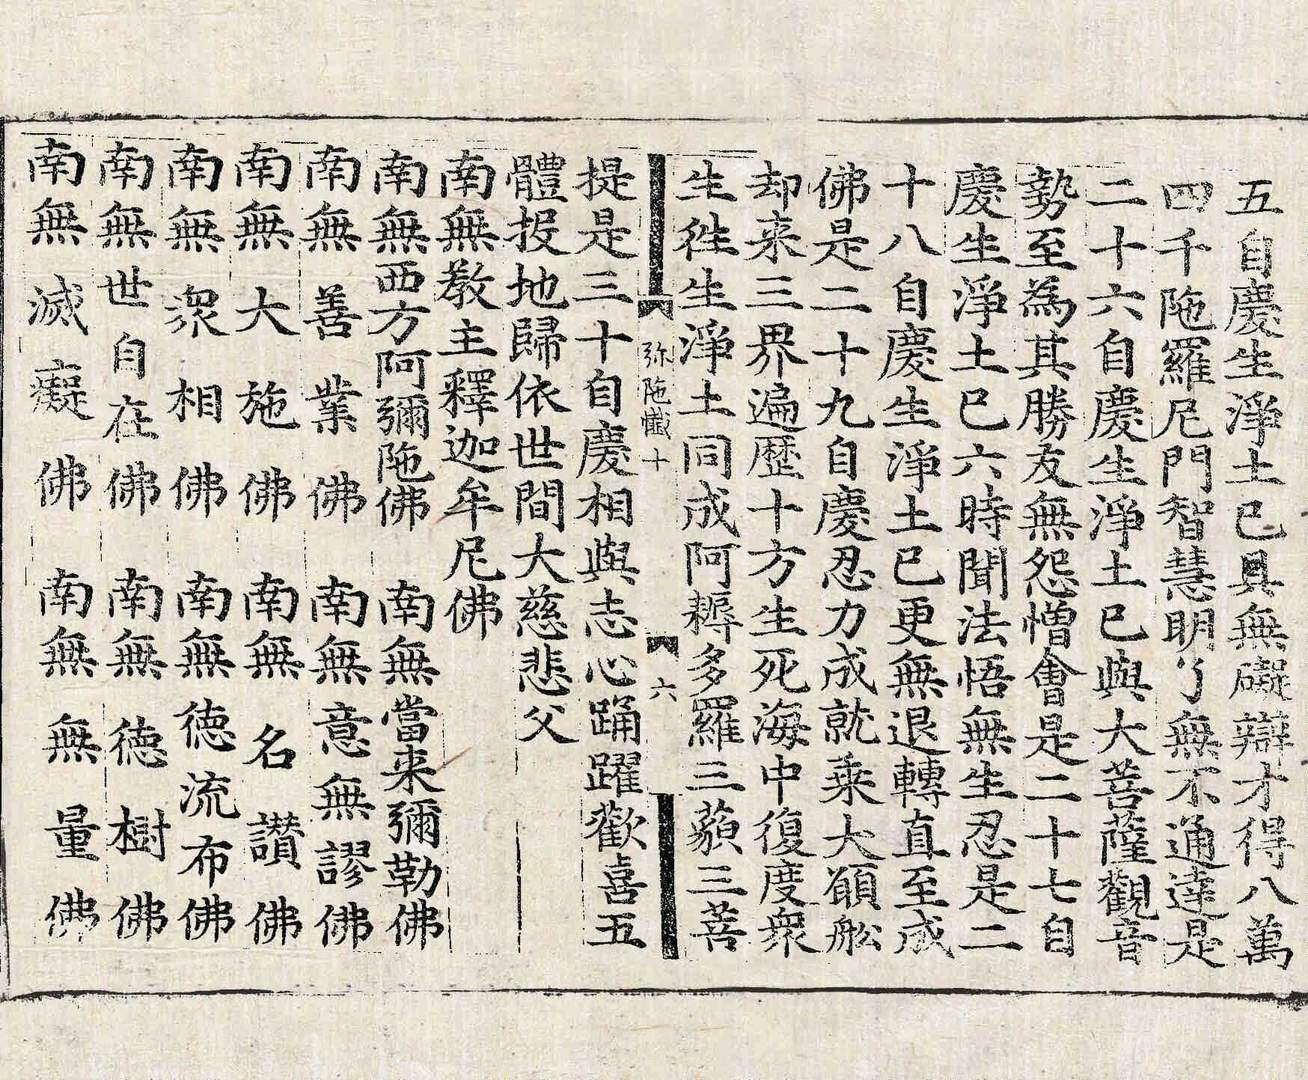 五自慶生淨土已具無礙辯才得八萬
四千陁羅尼門智慧明了無不通達是
二十六自慶生淨土已與大菩薩觀音
勢至為其勝友無怨憎會是二十七自
慶生淨土已六時聞法悟無生忍是二
十八自慶生淨土已更無退轉直至成
佛是二十九自慶忍力成就乗大願舩
却来三界遍歷十方生死海中復度衆
生徃生淨土同成阿耨多羅三藐三菩
弥陁懺十 六
提是三十自慶相與志心踊躍歡喜五
體投地歸依世間大慈悲父
南無教主釋迦牟尼佛
南無西方阿彌陁佛 南無當来彌勒佛
南無善業佛 南無意無謬佛
南無大施佛 南無名讃佛
南無衆相佛 南無徳流布佛
南無世自在佛 南無徳樹佛
南無滅癡佛 南無無量佛